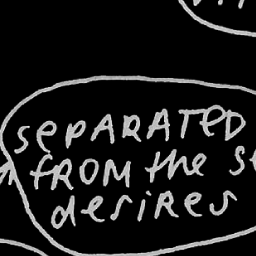 SEPARATED
FROM the
desires